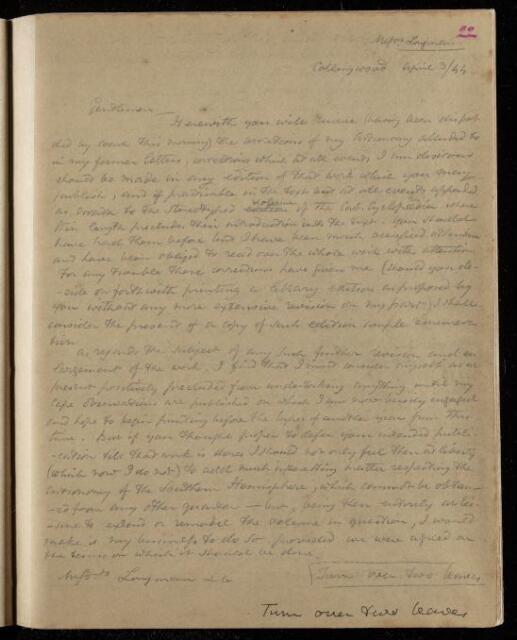 22
Messrs Longman
Collingwood April 3/44
Gentlemen
Herewith you will receive (having been dispat
ched by coach this morning) the corrections of my Astronomy alluded to
in my former letters, corrections which at all events I am desirous
should be made in any edition of that work which you may
publish, and if practicable in the text and at all events appended
as errata to the stereotyped volume of the Cab. Cyclopædia where
their length precludes their introduction into the text. You should
have had them before but I have been much occupied
and have been obliged to read over the whole work with attention
For any trouble these corrections have given me (should you de-
-cide on forthwith printing a library edition as proposed by
you without any more extensive revision on my part) I shall
consider the present of a copy of such edition ample remunera
tion
As regards the subject of any such further revision and en
largement of the work, I find that I must consider myself as at
present positively precluded from undertaking anything until my
Cape Observations are published on which I am now busily engaged
and hope to begin printing before the lapse of another year from this
time. But if you thought proper to defer your intended publi-
-cation till that work is done I should not only feel then at liberty
(which now I do not) to add much interesting matter respecting the
astronomy of the Southern Hemisphere, which cannot be obtain-
-ed from any other quarter — but, being then entirely at lei-
-sure to extend or remodel the volume in question, I would
make it my business to do so provided we were agreed on
the terms on which it should be done
Messrs Longman & Co
Turn over two leaves
Turn over two leaves